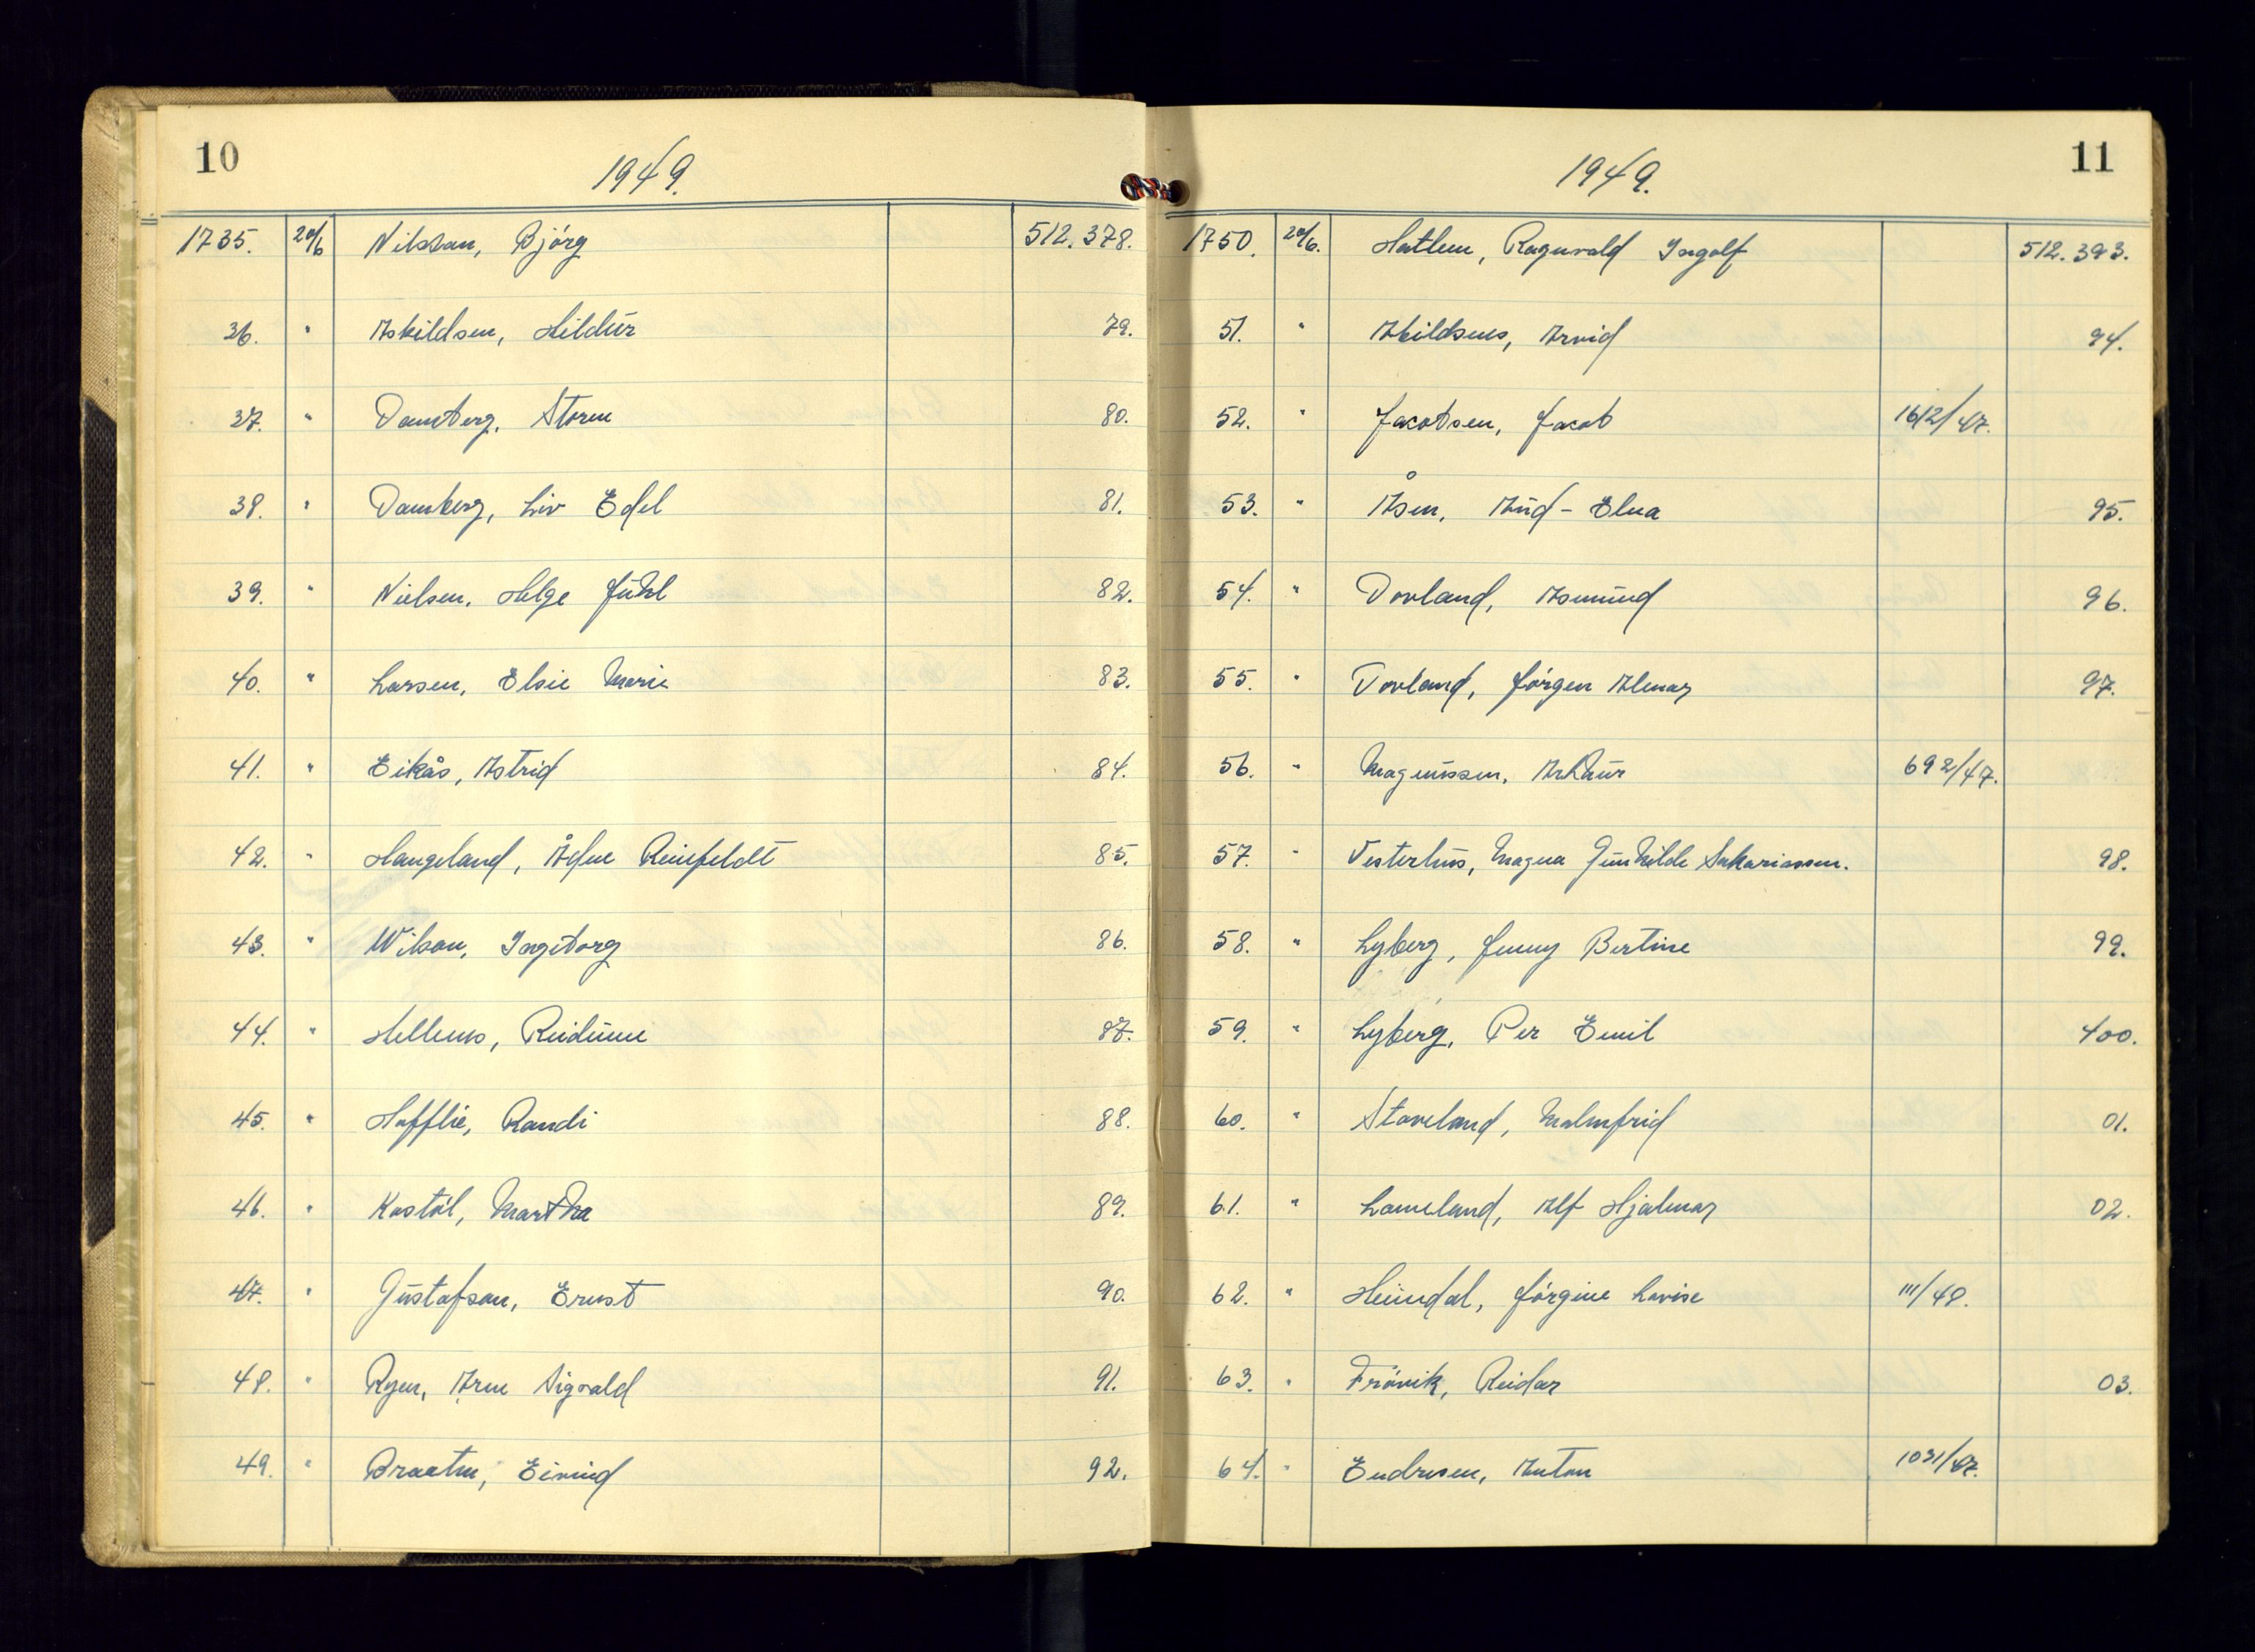 10
1949.
1735. 20/6 Nilsson, Bjørg 512.378.
36. " Askildsen, Hildur 79.
37. " Damberg, Storm 80.
38. " Damberg, Liv Edel 81.
39. " Nielsen, Helge Juhl 82.
40. " Larsen, Elsie Marie 83.
41. " Eikås, Astrid 84.
42. " Haugeland, Ådne Reinfeldt 85.
43. " Wilson, Ingeborg 86.
44. " Hellems, Reidunn 87.
45. " Hafflie, Randi 88.
46. " Kostøl, Martha 89.
47. " Gustafson, Ernst 90.
48. " Ryen, Arne Sigvald 91.
49. " Braaten, Eivind 92.
11
1949.
1750. 20/6. Hatlem, Ragnvald Ingolf 512.393.
51. " Askildsens, Arvid 94.
52. " Jacobsen, Jacob 1612/47.
53. " Åsen, Aud-Elna 95.
54. " Dovland, Asmund 96.
55. " Dovland, Jørgen Almar 97.
56. " Magnussen, Arthur 692/47.
57. " Vesterhus, Magna Gunhilde Sakariassen. 98.
58. " Lyberg, Jenny Bertine 99.
59. " Lyberg, Per Emil 400.
60. " Staveland, Malmfrid 01.
61. " Laudland, Alf Hjalmar 02.
62. " Heimdal, Jørgine Lovise 111/48.
63. " Frøvik, Reidar 03.
64. " Endresen, Anton 1031/47.